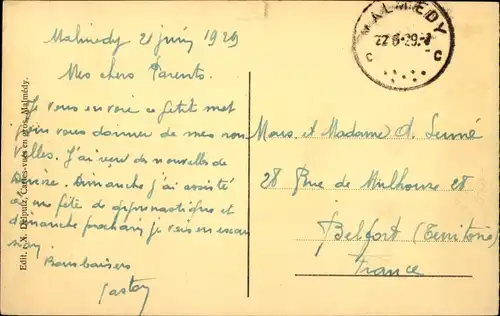 Malmedy 21 juin 1929
Mes chers Parents.
Je vous envoie ce petit mot
pour vous donner de mes nou
velles. J'ai reçu des nouvelles de
Denise. Dimanche j'ai assisté
à une fête de gymnastique et
dimanche prochain je vais en excur
sion
Bons baisers
Gaston
Edit. X. Delputz, Cartes-vues en gros, Malmédy.
MALMEDY
22 6-29
C C
Mons. et Madame A.
28 Rue de Mulhouse 28
Belfort (Territoire)
France